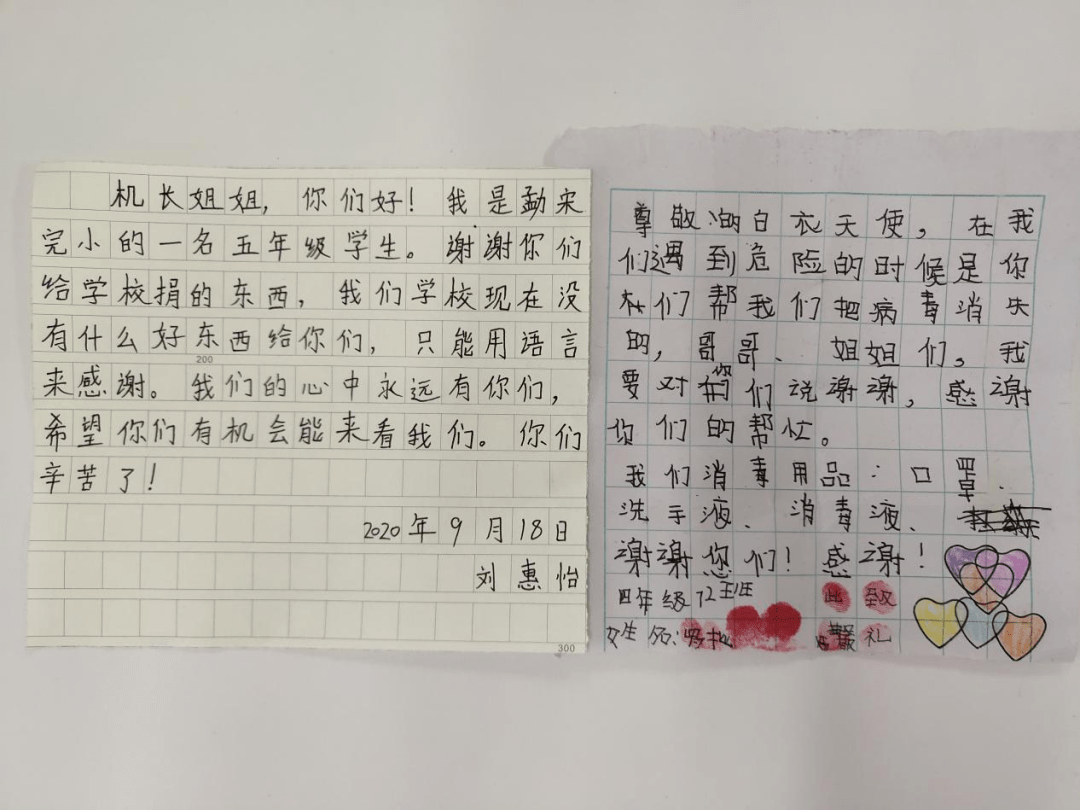 机长姐姐，你们好！我是勐宋
完小的一名五年级学生。谢谢你们
给学校捐的东西，我们学校现在没
有什么好东西给你们，只能用语言
200
来感谢。我们的心中永远有你们，
希望你们有机会能来看我们。你们
辛苦了！
2020年9月18日
刘惠怡
300
尊敬的白衣天使，在我
们遇到危险的时候是你
们帮我们把病毒消失
的，哥哥、姐姐们。我
要对你们说谢谢，感谢
你们的帮忙。
我们消毒用品：口罩、
洗手液、消毒液、
谢谢您们！感谢！
四年级72班 此致
女生 名： 礼